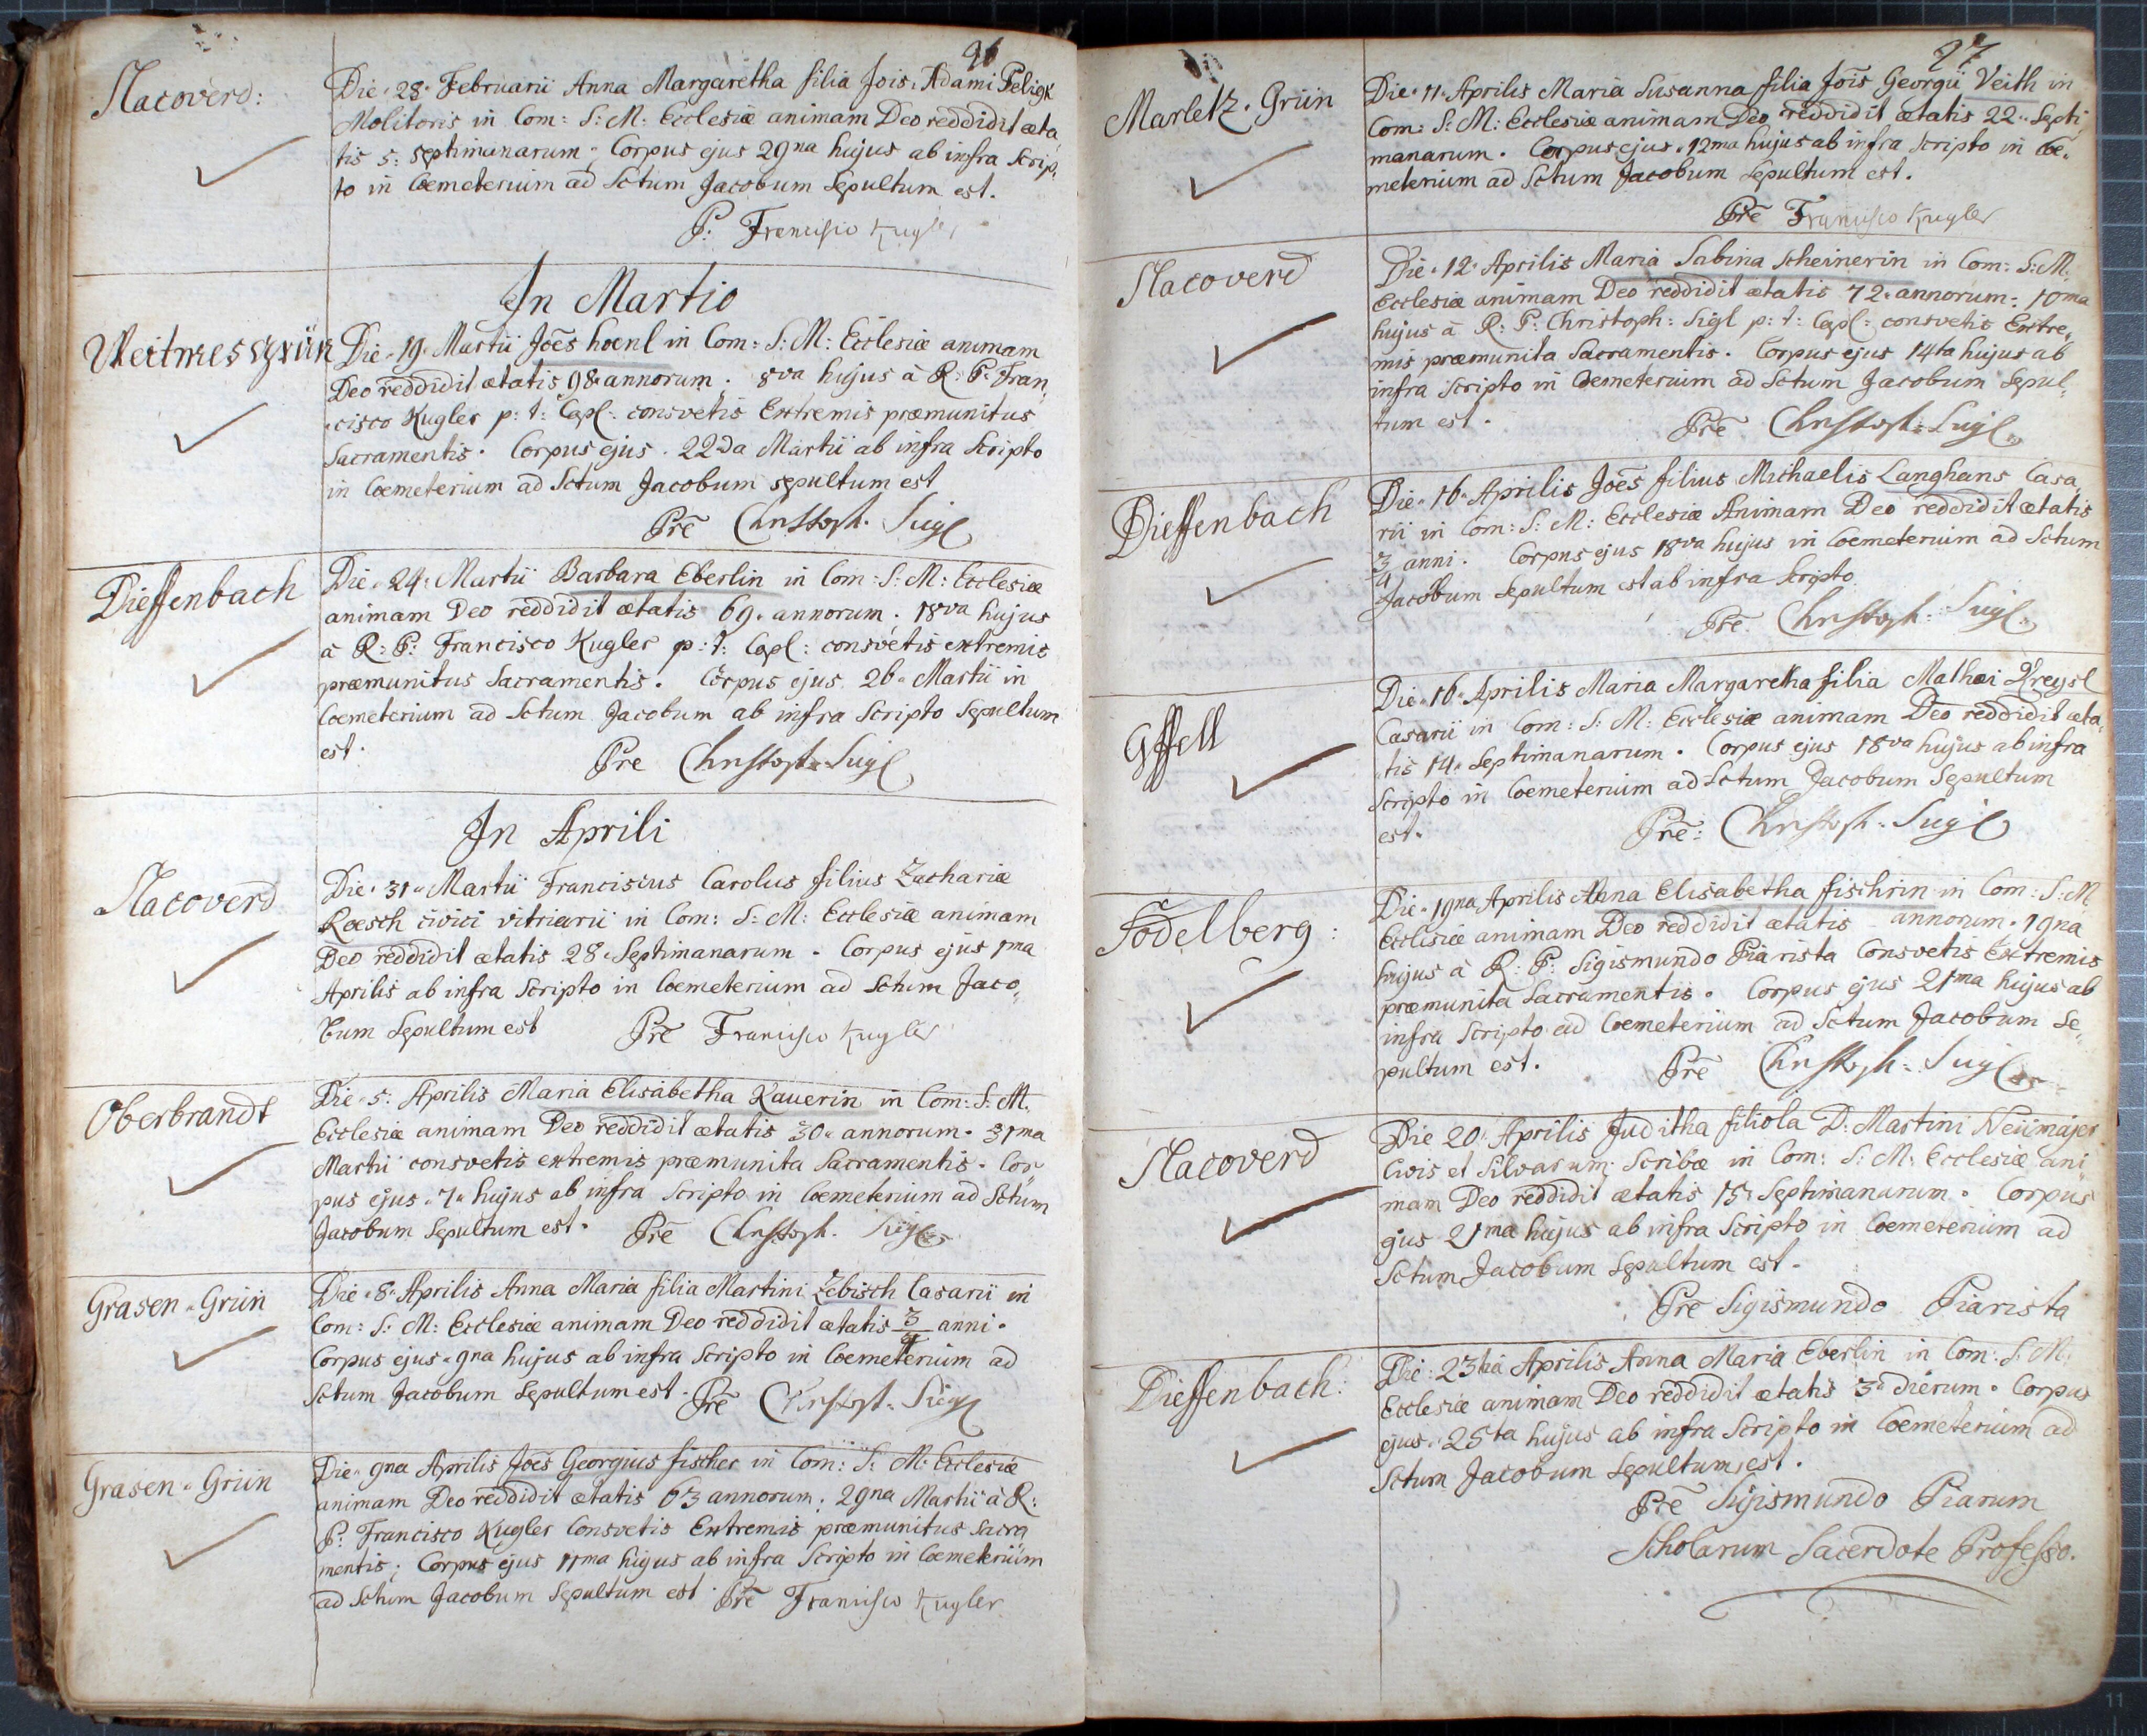 96
Slacoverd:
Die 28 Februarii Anna Margaretha filia Jois Adami Peligk
Molitoris in Com: S: M: Ecclesiæ animam Deo reddidit æta
tis 5: septimanarum; Corpus ejus 29na hujus ab infra scrip,
to in Coemeterium ad Sctum Jacobum Sepultum est.
P: Francisco Kugler
In Martio
Weitmessgrün
Die 19 Martii Joēs hoenl in Com: S: M: Ecclesiæ animam
Deo reddidit ætatis 98 annorum. 8va hujus â R: P: Fran,
cisco Kugler p: t: Capl: consvetis Extremis præmunitus
Sacramentis. Corpus ejus. 22da Martii ab infra Scripto
in Coemeterium ad Sctum Jacobum sepultum est
Prē Christoph. Sigl
Dieffenbach
Die 24 Martii Barbara Eberlin in Com: S: M: Ecclesiæ
animam Deo reddidit ætatis 69. annorum; 18va hujus
â R: P: Francisco Kugler p: t: Capl: consvetis extremis
præmunitus Sacramentis. Corpus ejus 26 Martii in
Coemeterium ad Sctum Jacobum ab infra Scripto Sepultum
est.
Pre Christoph: Sigl
In Aprili
Slacoverd
Die 31 Martii Franciscus Carolus filius Zachariæ
Roesch civici vitriarii in Com: S: M: Ecclesiæ animam
Deo reddidit ætatis 28 Septimanarum. Corpus ejus 1ma
Aprilis ab infra Scripto in Coemeterium ad Sctum Jaco,
bum Sepultum est Prē Francisco Kugler
Oberbrandt
Die 5: Aprilis Maria Elisabetha Kauerin in Com: S: M.
Ecclesiæ animam Deo reddidit ætatis 30 annorum. 31ma
Martii consvetis extremis præmunita Sacramentis. Cor
pus ejus 7 hujus ab infra Scripto in Coemeterium ad Sctum
Jacobum Sepultum est. Prē Christoph. Sigl
Grasen Grün
Die 8 Aprilis Anna Maria filia Martini Zebisch Casarii in
Com: S: M: Ecclesiæ animam Deo reddidit ætatis 3/4 anni.
Corpus ejus 9na hujus ab infra Scripto in Coemeterium ad
Sctum Jacobum Sepultum est. Prē Christoph: Sigl
Grasen Grün
Die 9na Aprilis Joēs Georgius fischer in Com: S: M: Ecclesiæ
animam Deo reddidit ætatis 63 annorum; 29na Martii â R:
P: Francisco Kugler Consvetis Extremis præmunitus Sacra
mentis; Corpus ejus 11ma hujus ab infra Scripto in Coemeterium
ad Sctum Jacobum Sepultum est. Prē Francisco Kugler
97
Marletz Grün
Die 11 Aprilis Maria Susanna filia Jois Georgii Veith in
Com: S: M: Ecclesiæ animam Deo reddidit ætatis 22 Septi
manarum. Corpus ejus 12ma hujus ab infra Scripto in Coe,
meterium ad Sctum Jacobum Sepultum est.
Prē Francisco Kugler
Slacoverd
Die 12 Aprilis Maria Sabina Scheinerin in Com: S: M:
Ecclesiæ animam Deo reddidit ætatis 72 annorum; 10ma
hujus â R: P: Christoph: Sigl p: t: Capl: consvetis Extre,
mis præmunita Sacramentis. Corpus ejus 14ta hujus ab
infra Scripto in Coemeterium ad Sctum Jacobum Sepul,
tum est. Prē Christoph: Sigl
Dieffenbach
Die 16 Aprilis Joēs filius Michaelis Langhans Casa,
rii in Com: S: M: Ecclesiæ Animam Deo reddidit ætatis
3/4 anni. Corpus ejus 18va hujus in Coemeterium ad Sctum
Jacobum Sepultum est ab infra Scripto.
Prē Christoph: Sigl.
Gffell
Die 16 Aprilis Maria Margaretha filia Mathæi Kreysl
Casarii in Com: S: M: Ecclesiæ animam Deo reddidit æta,
tis 14 Septimanarum. Corpus ejus 18va hujus ab infra
Scripto in Coemeterium ad Sctum Jacobum Sepultum
est. Prē: Christoph. Sigl
Todelberg:
Die 19na Aprilis Anna Elisabetha fischrin in Com: S: M
Ecclesiæ animam Deo reddidit ætatis annorum. 19na
hujus â R: P: Sigismundo Piarista Consvetis Extremis
præmunita Sacramentis. Corpus ejus 21ma hujus ab
infra Scripto ad Coemeterium ad Sctum Jacobum Se,
pultum est. Prē Christoph: Sigl
Slacoverd
Die 20 Aprilis Juditha filiola D: Martini Neümajer
Civis et Silvarum Scribæ in Com: S: M: Ecclesiæ ani
mam Deo reddidit ætatis 15 Septimanarum. Corpus
ejus 21ma hujus ab infra Scripto in Coemeterium ad
Sctum Jacobum Sepultum est.
Prē Sigismundo Piarista
Dieffenbach:
Die 23tia Aprilis Anna Maria Eberlin in Com: S: M:
Ecclesiæ animam Deo reddidit ætatis 3 dierum. Corpus
ejus 25ta hujus ab infra Scripto in Coemeterium ad
Sctum Jacobum Sepultum est.
Prē Sigismundo Piarum
Scholarum Sacerdote Professo.
11